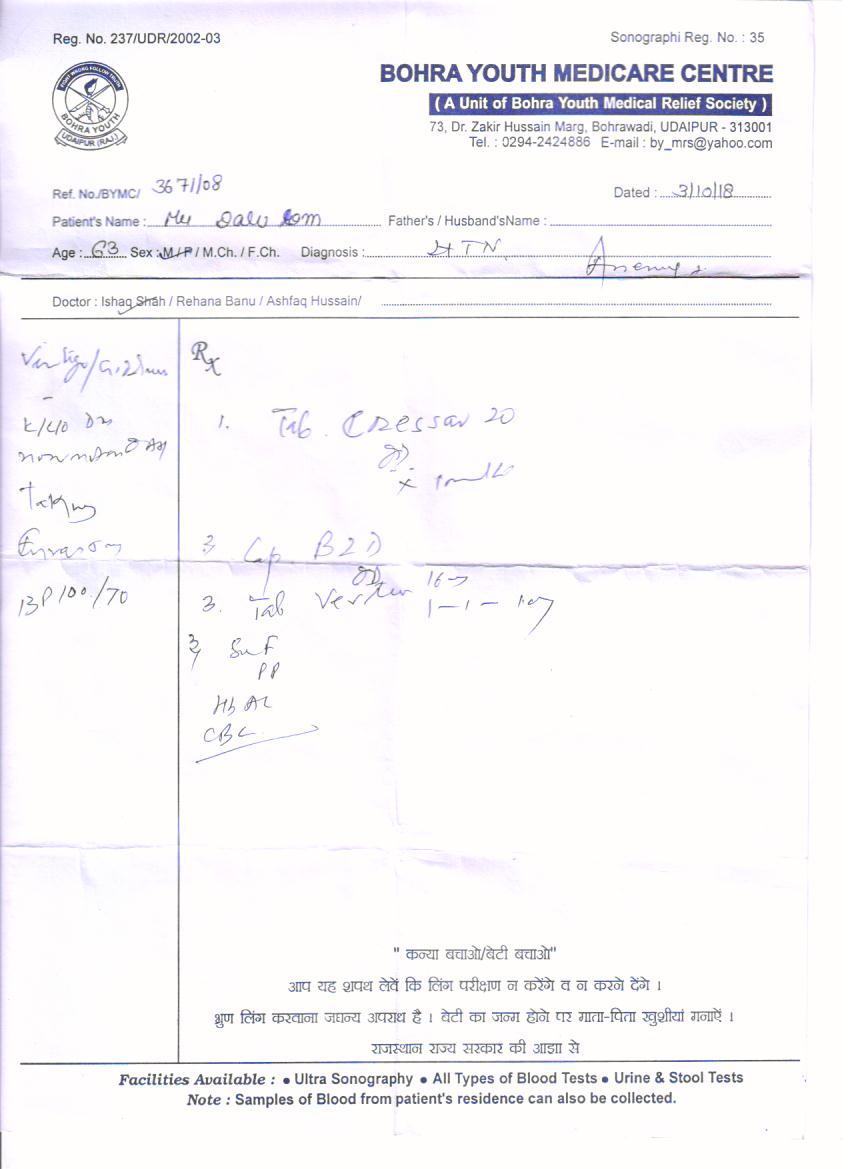 Reg. No. 237/UDR/2002-03
Sonographi Reg. No. : 35
BOHRA YOUTH MEDICARE CENTRE
( A Unit of Bohra Youth Medical Relief Society )
73, Dr. Zakir Hussain Marg, Bohrawadi, UDAIPUR - 313001
Tel. : 0294-2424886 E-mail : by_mrs@yahoo.com
BOHRA YOUTH
UDAIPUR (RAJ.)
Ref. No./BYMC/ 3671/08
Dated : 3/10/18
Patient's Name :
Father's / Husband'sName :
Age : 63 Sex : M/F / M.Ch. / F.Ch. Diagnosis : HTN
Doctor : Ishaq Shah / Rehana Banu / Ashfaq Hussain/
Vertigo/
Rx
K/c/o
1. Tab. 20
Taking
3 Cap. B2D
BP 100/70
3. Tab 16
1-1-1
PP
CBC
" कन्या बचाओ/बेटी बचाओ"
आप यह शपथ लेवें कि लिंग परीक्षण न करेंगे व न करने देंगे ।
भ्रुण लिंग करवाना जघन्य अपराध है । बेटी का जन्म होने पर माता-पिता खुशीयां मनाऐं ।
राजस्थान राज्य सरकार की आज्ञा से
Facilities Available : ● Ultra Sonography ● All Types of Blood Tests ● Urine & Stool Tests
Note : Samples of Blood from patient's residence can also be collected.